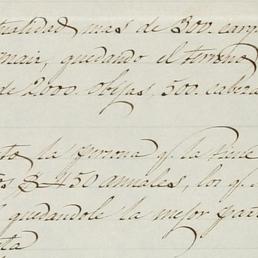 tualidad mas de 300. carg
mair, quedando el terreno
de 2000. obejas, 500. cabeza
to la persona q. la
os $ 450 anuales, los q.
quedandole la mejor part
ta